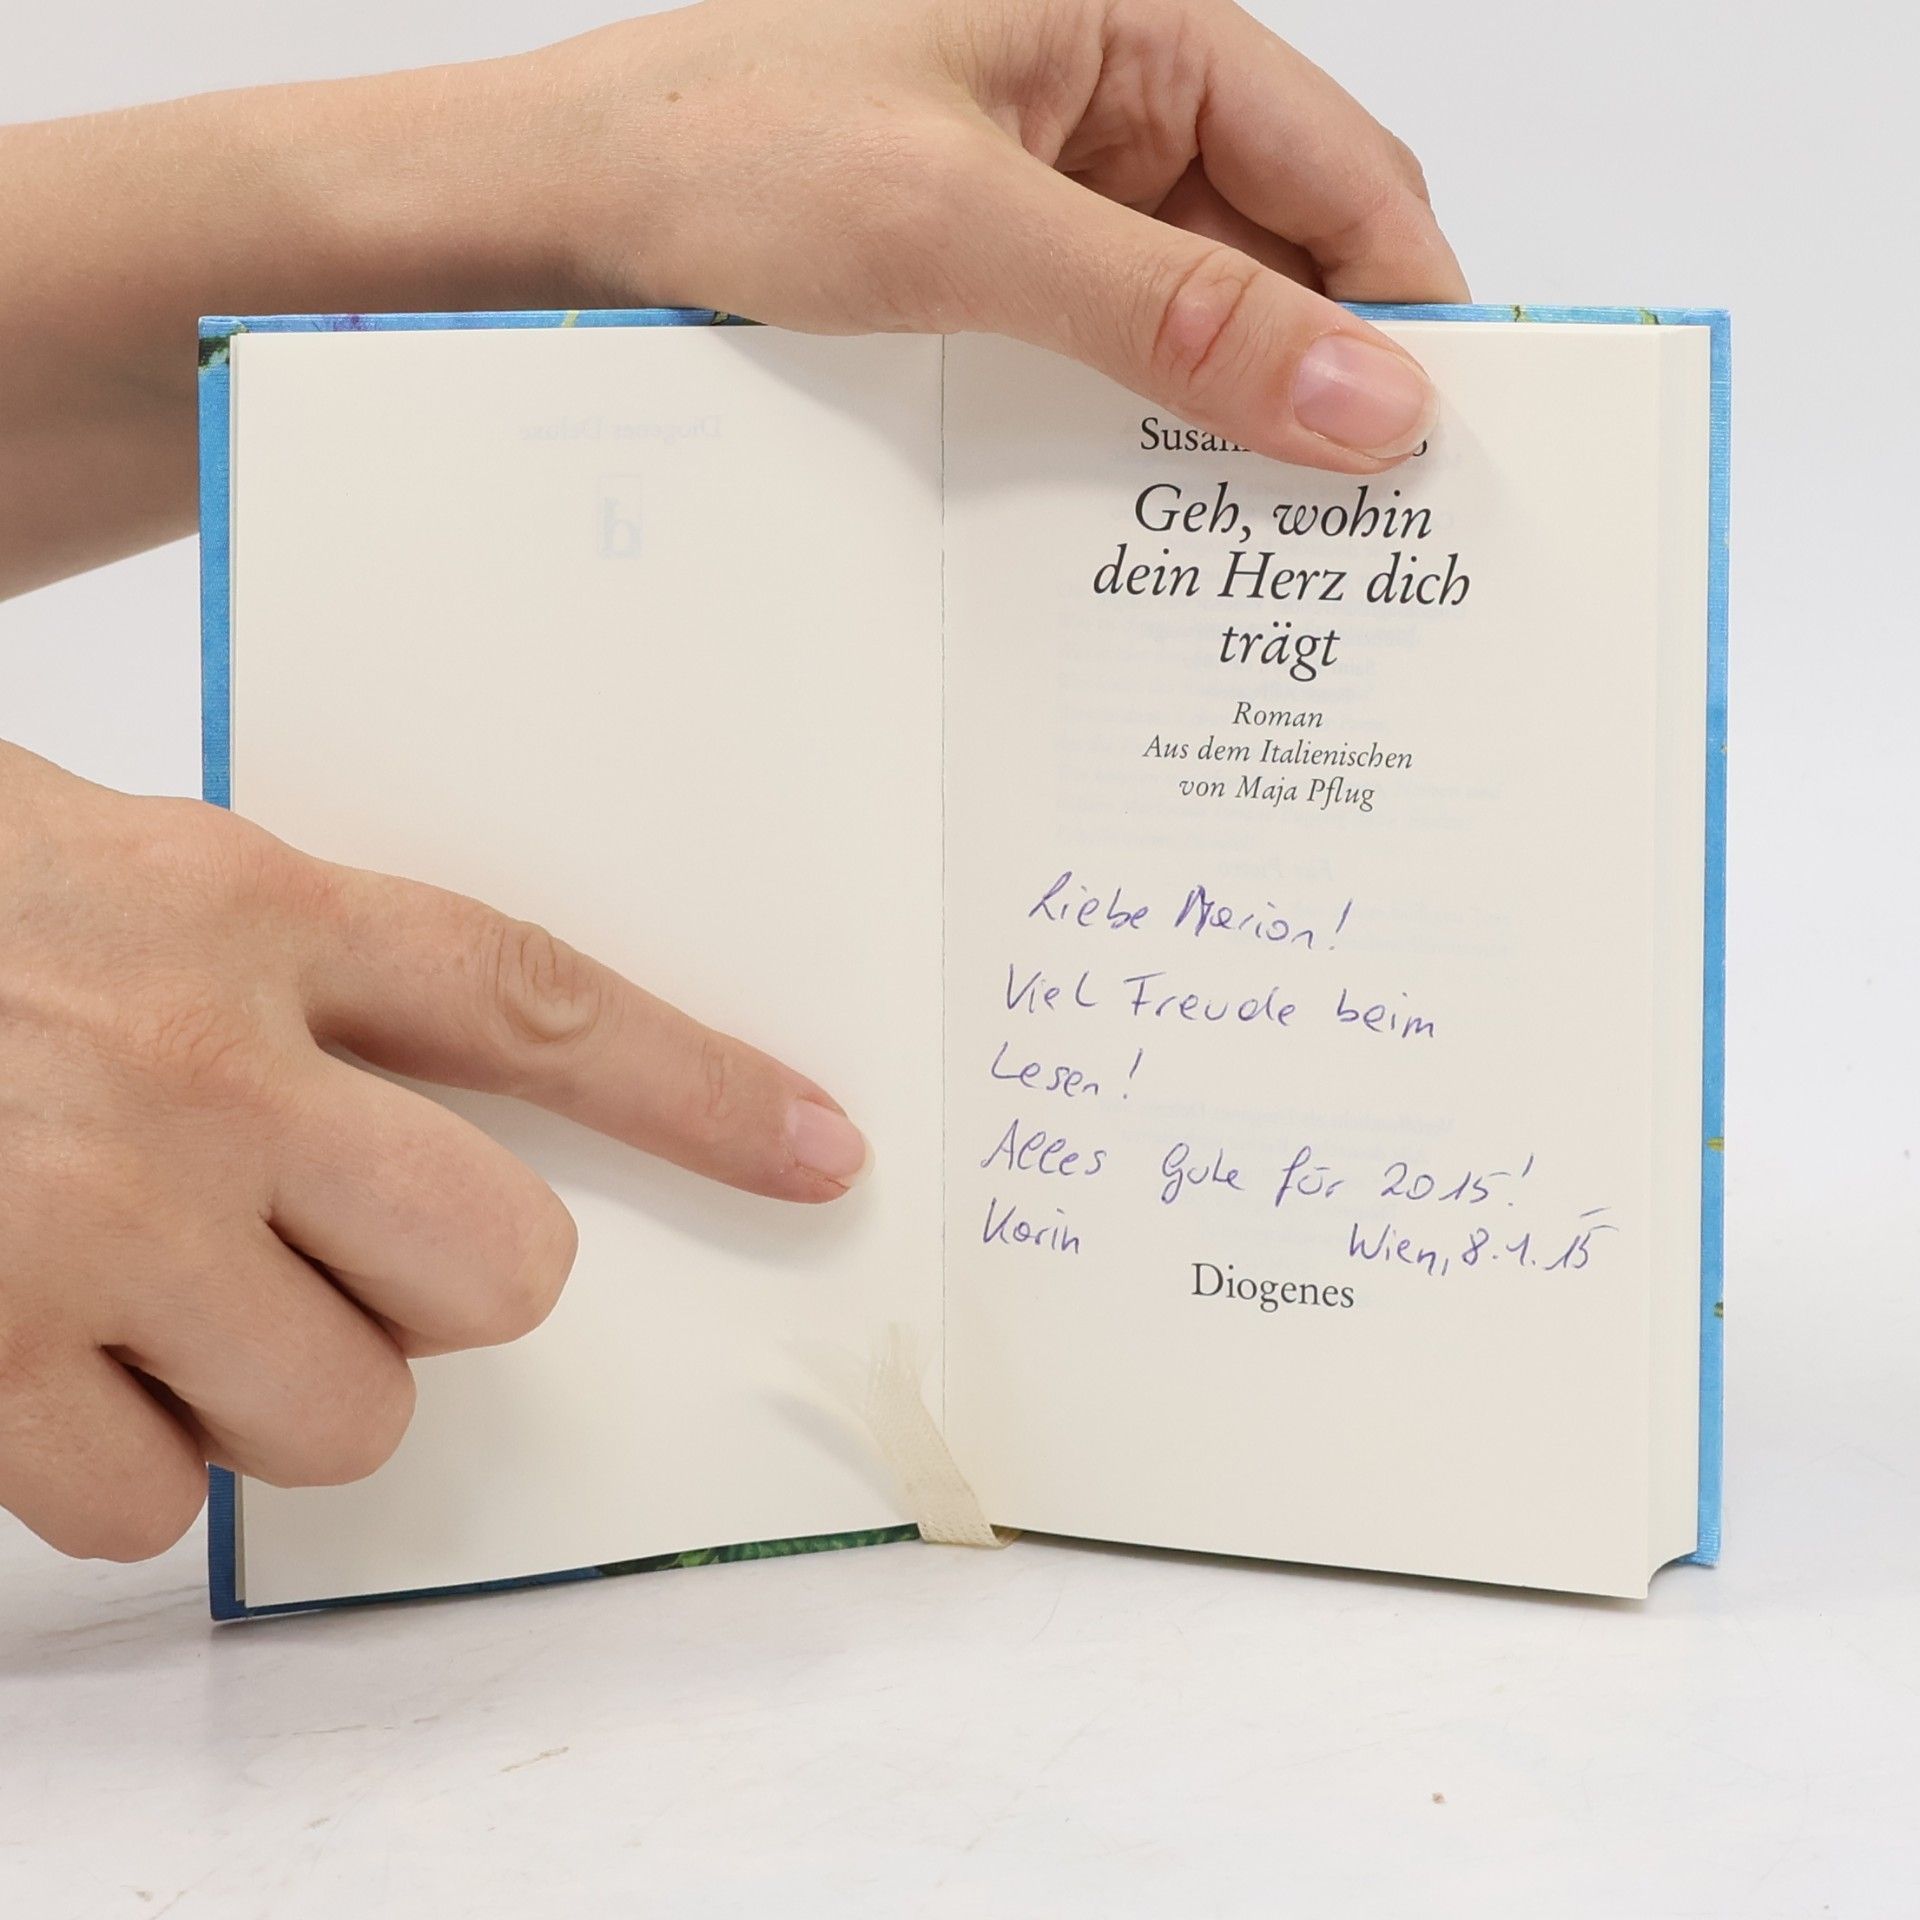 Geh, wohin
dein Herz dich
trägt
Roman
Aus dem Italienischen
von Maja Pflug
Liebe Marion!
Viel Freude beim
Lesen!
Alles Gute für 2015!
Karin Wien, 8.1.15
Diogenes